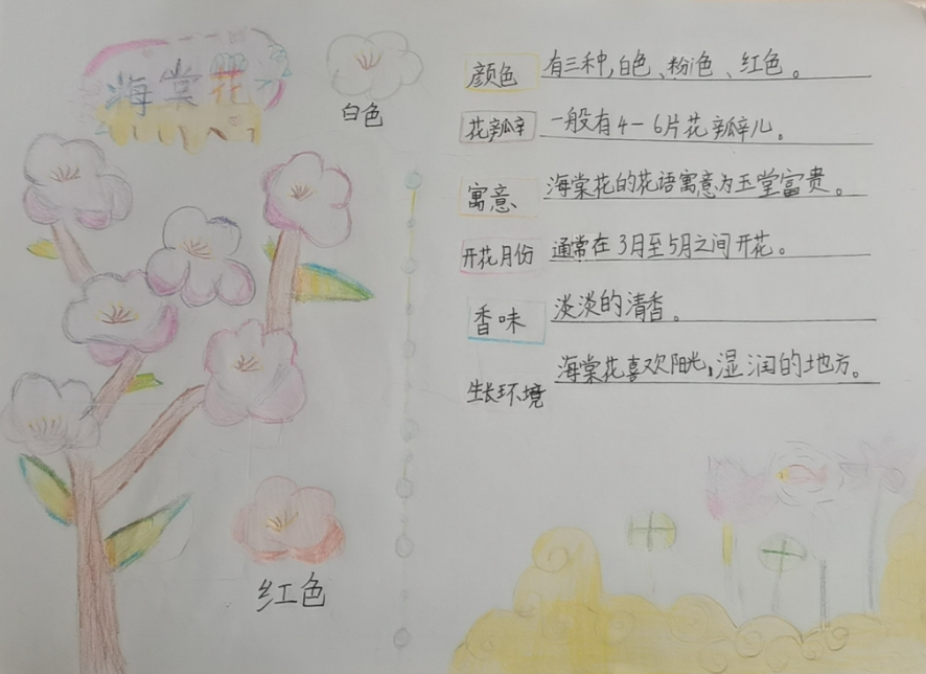 海棠花
白色
红色
颜色 有三种,白色、粉色、红色。
花瓣 一般有4-6片花瓣儿。
寓意 海棠花的花语寓意为玉堂富贵。
开花月份 通常在3月至5月之间开花。
香味 淡淡的清香。
生长环境 海棠花喜欢阳光,湿润的地方。